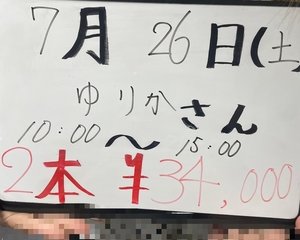 7月 26日(土
ゆりかさん
10:00 〜 15:00
2本 ¥34,000